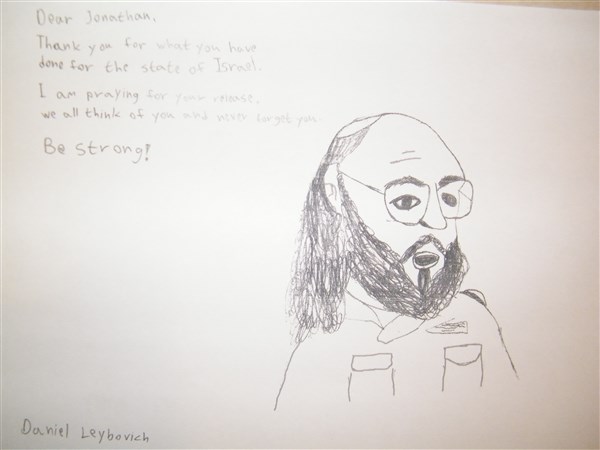 Dear Jonathan,
Thank you for what you have
done for the state of Israel.
I am praying for your release,
we all think of you and never forget you.
Be strong!
Daniel Leybovich